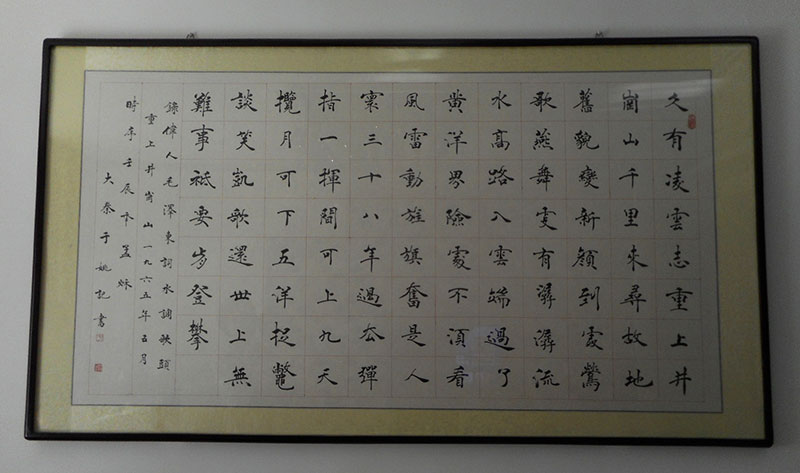 久有凌雲志重上井
崗山千里來尋故地
舊貌變新顏到處鶯
歌燕舞更有潺潺流
水高路入雲端過了
黄洋界險處不須看
風雷動旌旗奮是人
寰三十八年過去彈
指一揮間可上九天
攬月可下五洋捉鱉
談笑凱歌還世上無
難事祇要步登攀
錄偉人毛澤東詞水調歌頭
重上井崗山一九六五年五月
時年壬辰孟
大秦于姚記書